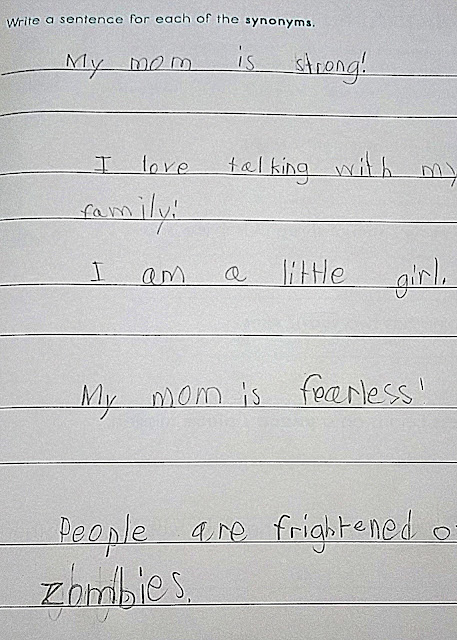 Write a sentence for each of the synonyms.
My mom is strong!
I love talking with my
family!
I am a little girl.
My mom is fearless!
People are frightened o
zombies.